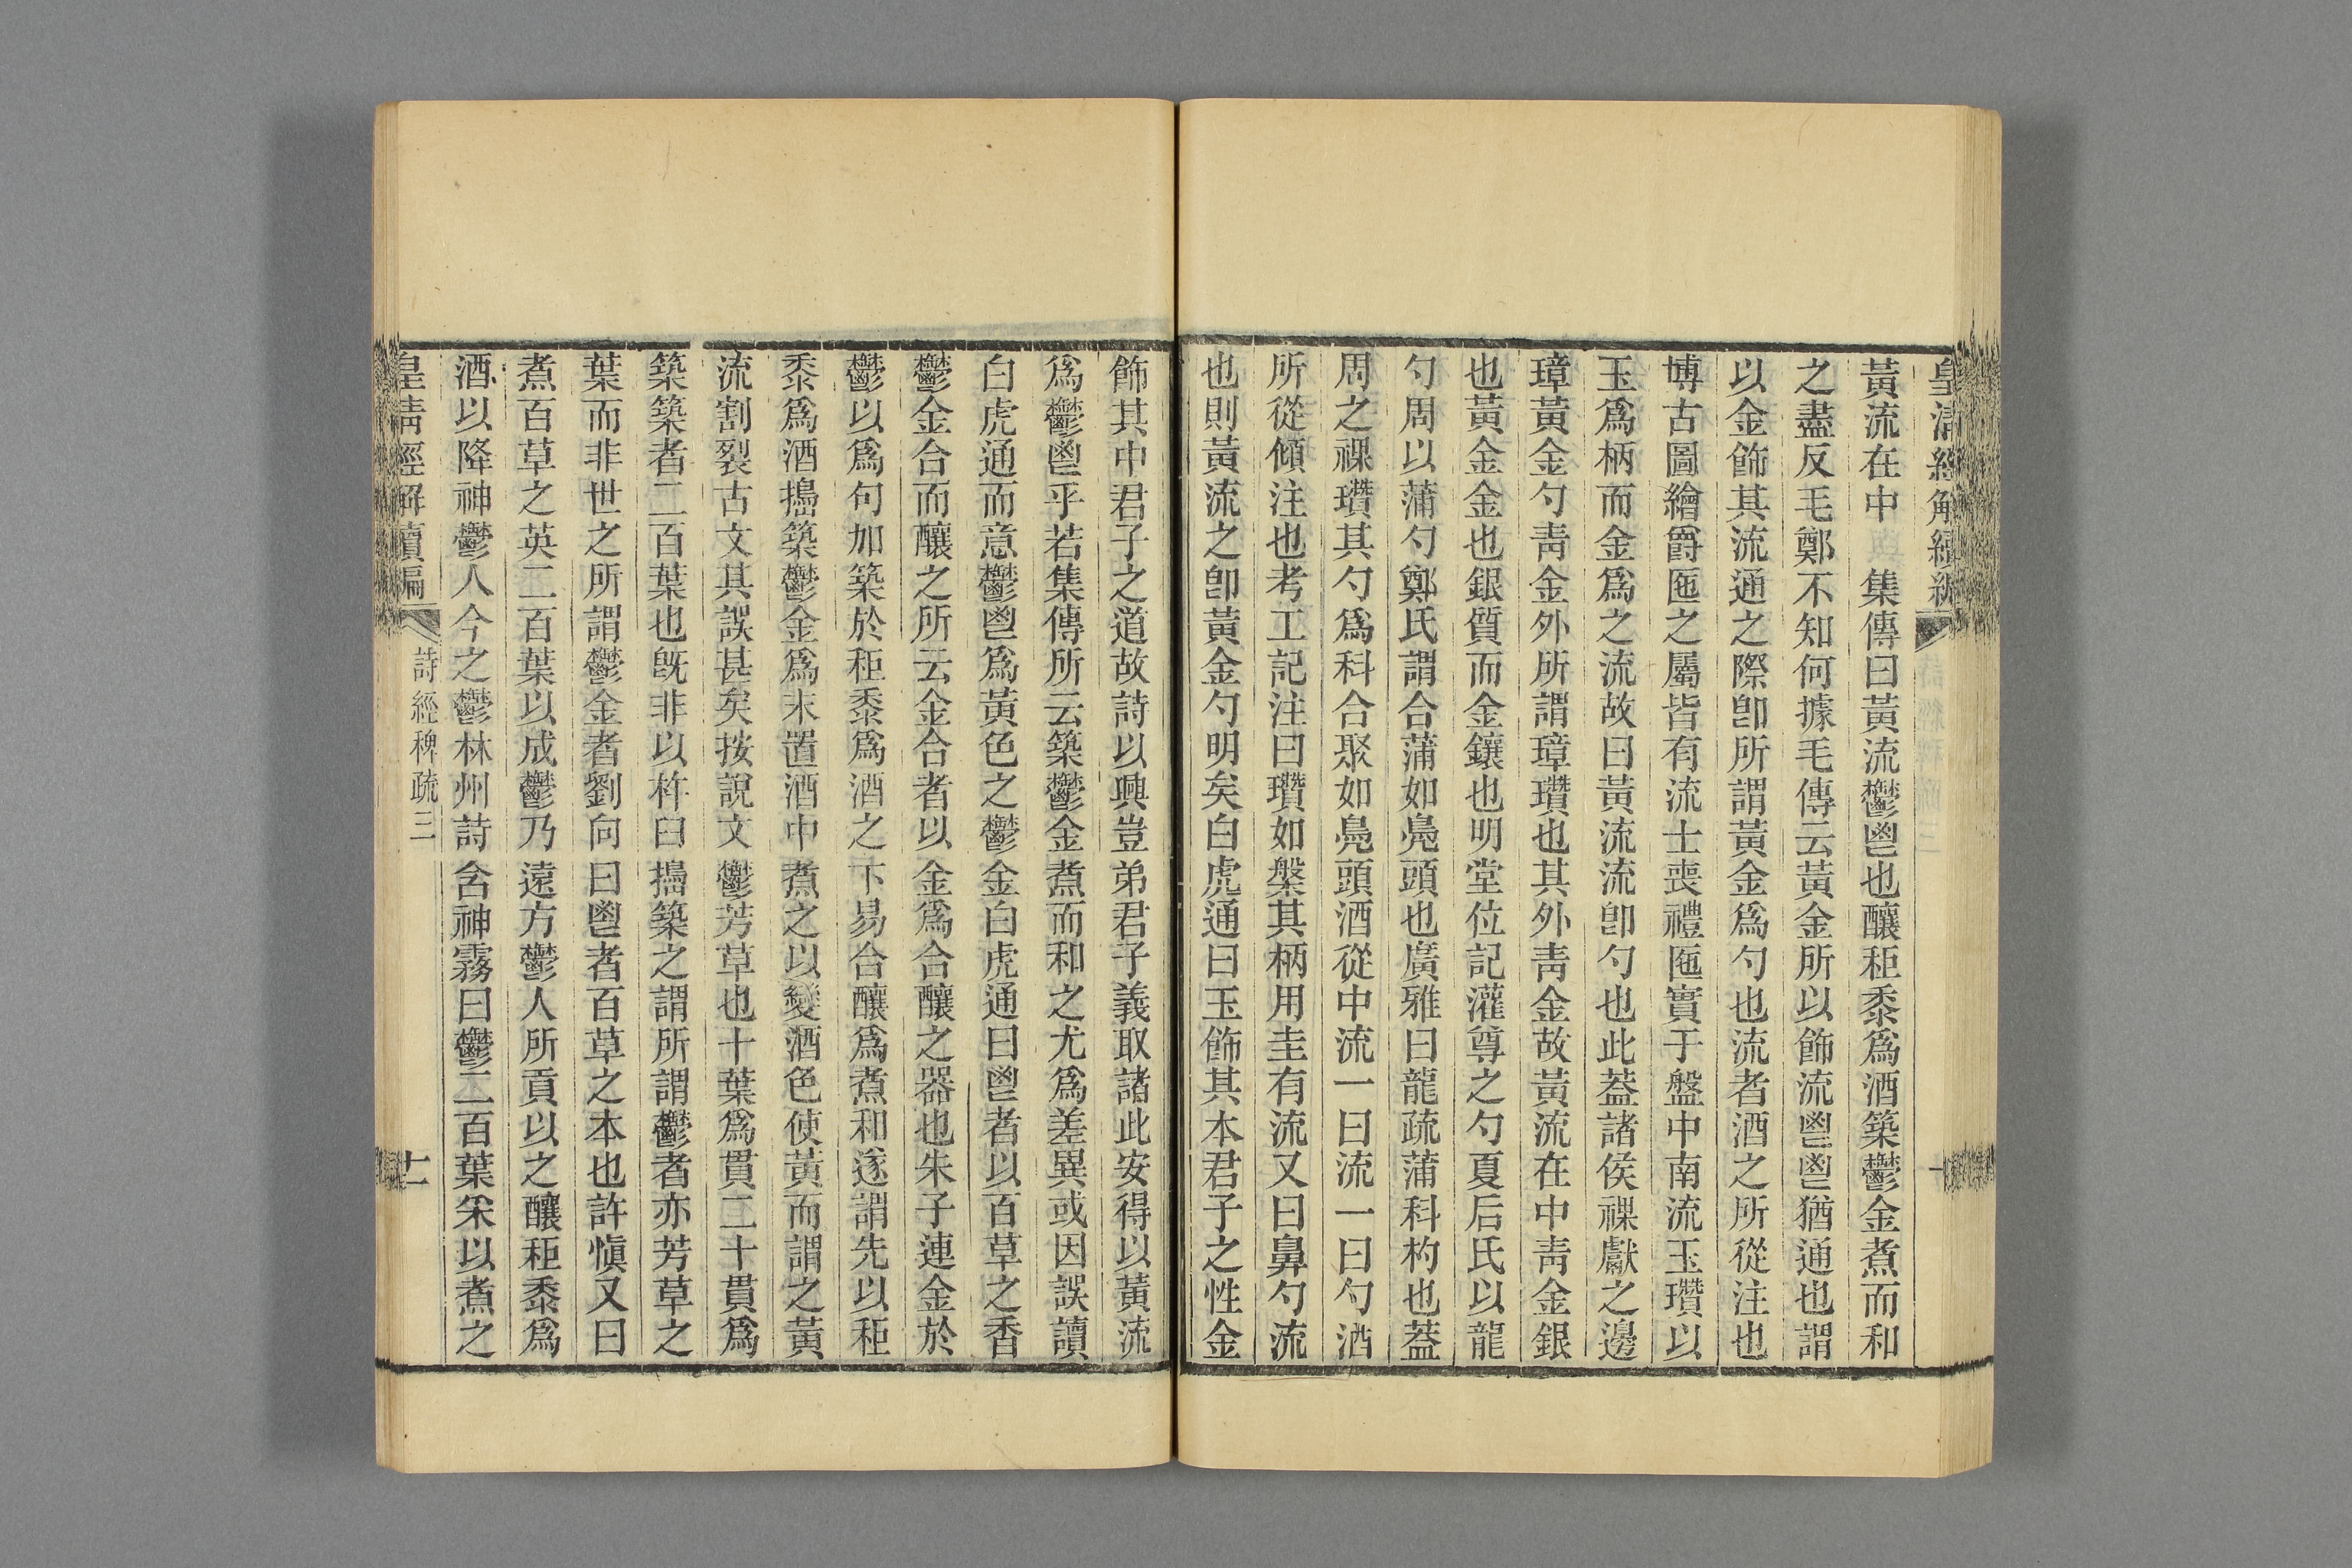 皇清經解續編
黃流在中　集傳曰黃流鬱鬯也釀秬黍爲酒築鬱金煮而和
之盡反毛鄭不知何據毛傳云黃金所以飾流鬯鬯猶通也謂
以金飾其流通之際卽所謂黃金爲勺也流者酒之所從注也
博古圖繪爵匜之屬皆有流士喪禮匜實于盤中南流玉瓚以
玉爲柄而金爲之流故曰黃流流卽勺也此葢諸侯祼獻之邊
璋黃金勺靑金外所謂璋瓚也其外靑金故黃流在中靑金銀
也黃金金也銀質而金鑲也明堂位記灌尊之勺夏后氏以龍
勺周以蒲勺鄭氏謂合蒲如鳧頭也廣雅曰龍疏蒲科杓也葢
周之祼瓚其勺爲科合聚如鳧頭酒從中流一曰流一曰勺酒
所從傾注也考工記注曰瓚如槃其柄用圭有流又曰鼻勺流
也則黃流之卽黃金勺明矣白虎通曰玉飾其本君子之性金
飾其中君子之道故詩以興豈弟君子義取諸此安得以黃流
爲鬱鬯乎若集傳所云築鬱金煮而和之尤爲差異或因誤讀
白虎通而意鬱鬯爲黃色之鬱金白虎通曰鬯者以百草之香
鬱金合而釀之所云金合者以金爲合釀之器也朱子連金於
鬱以爲句加築於秬黍爲酒之下易合釀爲煮和遂謂先以秬
黍爲酒擣築鬱金爲末置酒中煮之以變酒色使黃而謂之黃
流割裂古文其誤甚矣按說文鬱芳草也十葉爲貫二十貫爲
築築者二百葉也旣非以杵臼擣築之謂所謂鬱者亦芳草之
葉而非世之所謂鬱金者劉向曰鬯者百草之本也許愼又曰
煮百草之英二百葉以成鬱乃遠方鬱人所貢以之釀秬黍爲
酒以降神鬱人今之鬱林州詩含神霧曰鬱二百葉采以煮之
皇清經解續編　詩經稗疏三　十一